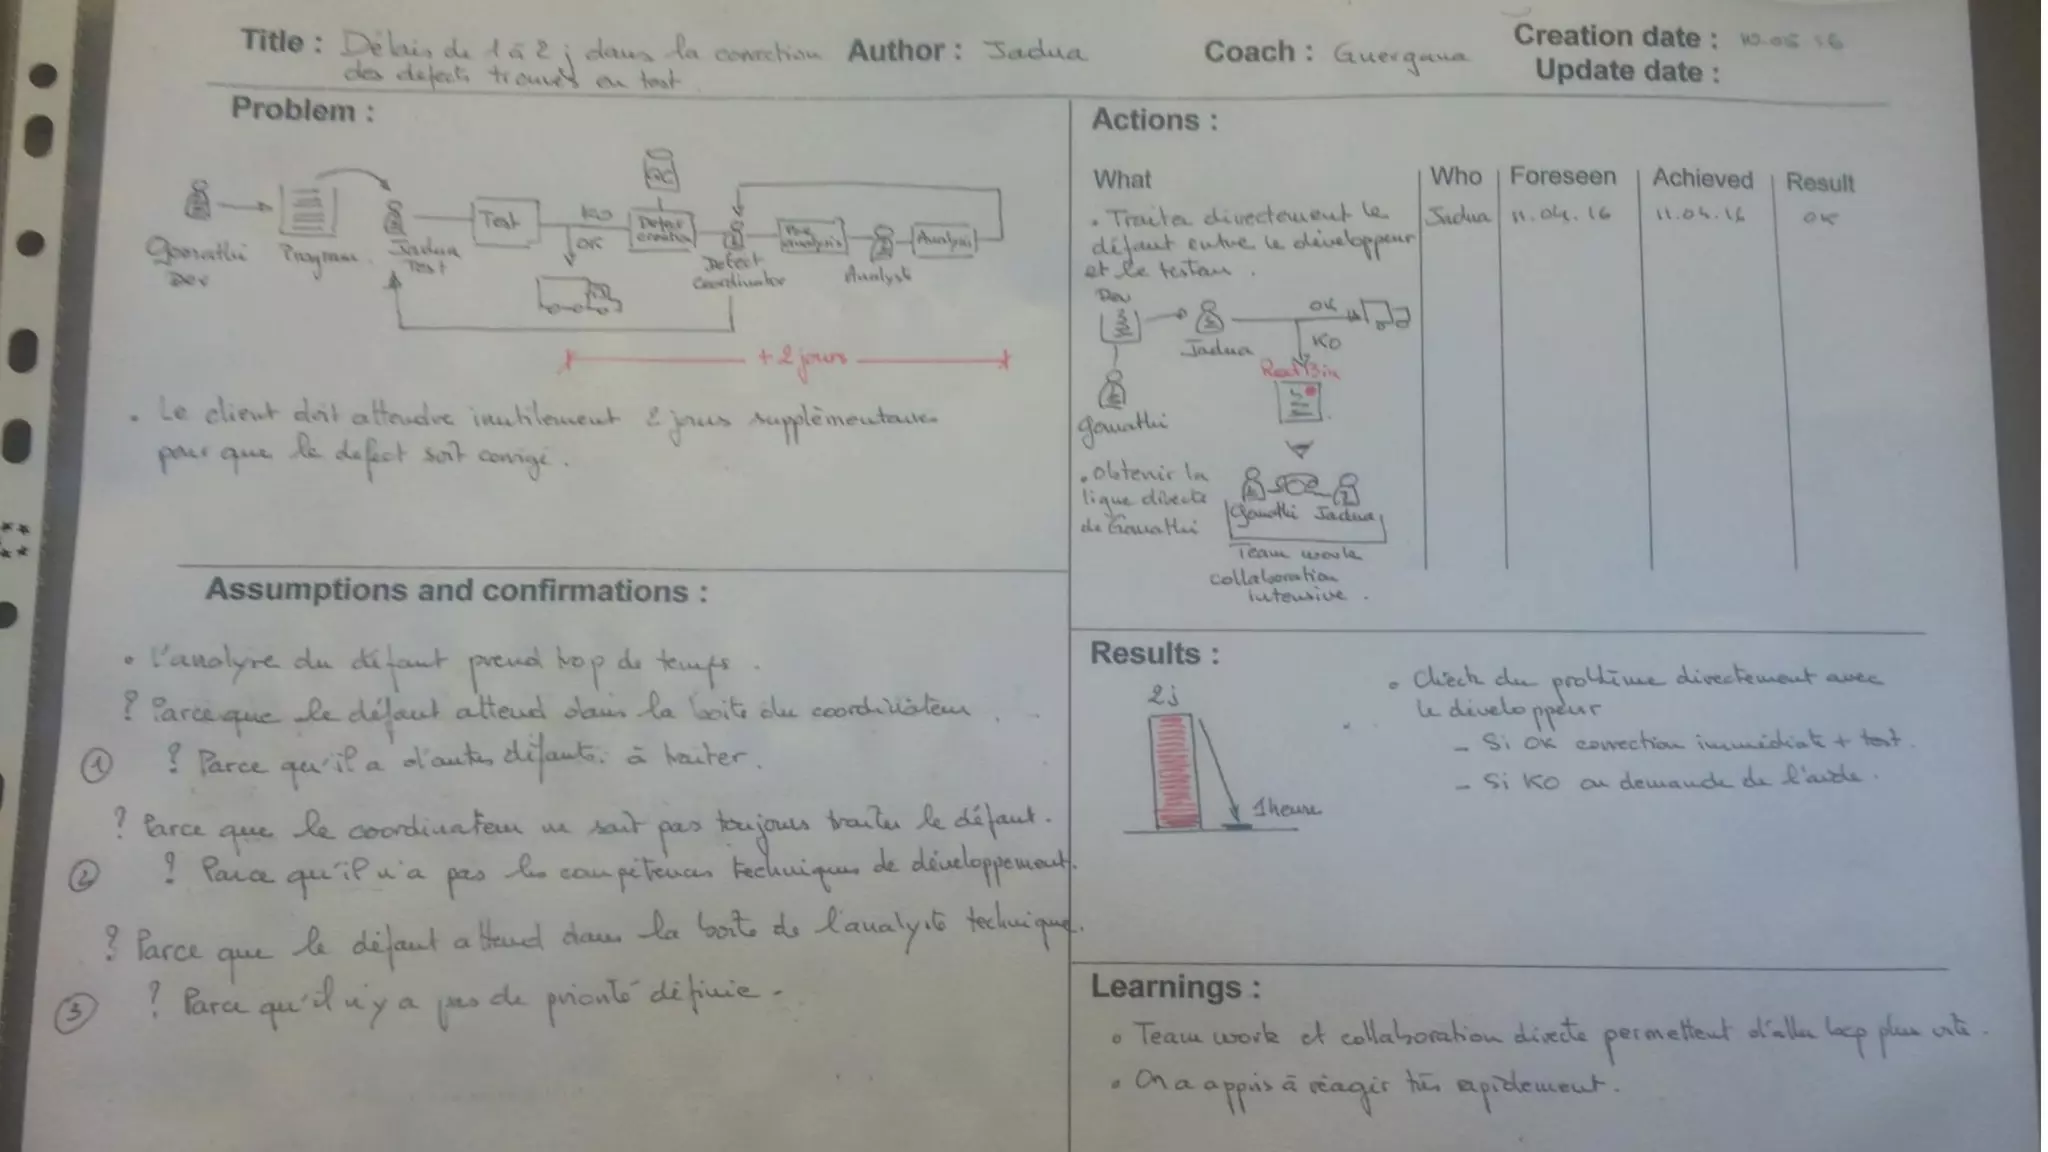 Title : Délais de 1 à 2 j dans la correction
des defects trouvés en test
Author : Jadua
Coach : Guergana
Creation date :
Update date :
Problem :
QC
Test
KO
OK
Defect
creation
Analysis
Dev
Program
Jadua
Test
Defect
Coordinator
Analyst
+ 2 jours
• Le client doit attendre inutilement 2 jours supplémentaires
pour que le defect soit corrigé .
Assumptions and confirmations :
• l'analyse du défaut prend trop de temps .
? Parce que le défaut attend dans la boite du coordinateur .
① ? Parce qu'il a d'autres défauts à traiter .
? Parce que le coordinateur ne sait pas toujours traiter le défaut .
② ? Parce qu'il n'a pas les compétences techniques de développement .
? Parce que le défaut attend dans la boite de l'analyste technique .
③ ? Parce qu'il n'y a pas de priorité définie .
Actions :
What Who Foreseen Achieved Result
• Traiter directement le Jadua 11.04.16 11.04.16 OK
défaut entre le développeur
et le testeur .
Dev
OK
KO
Jadua
Red Bin
Gomathi
• Obtenir la
ligne directe
de Gomathi
Gomathi Jadua
Team work
collaboration
intensive .
Results :
2j
1 heure
• Check du problème directement avec
le développeur
- Si OK correction immédiate + test .
- Si KO on demande de l'aide .
Learnings :
• Team work et collaboration directe permettent d'aller bcp plus vite .
• On a appris à réagir très rapidement .